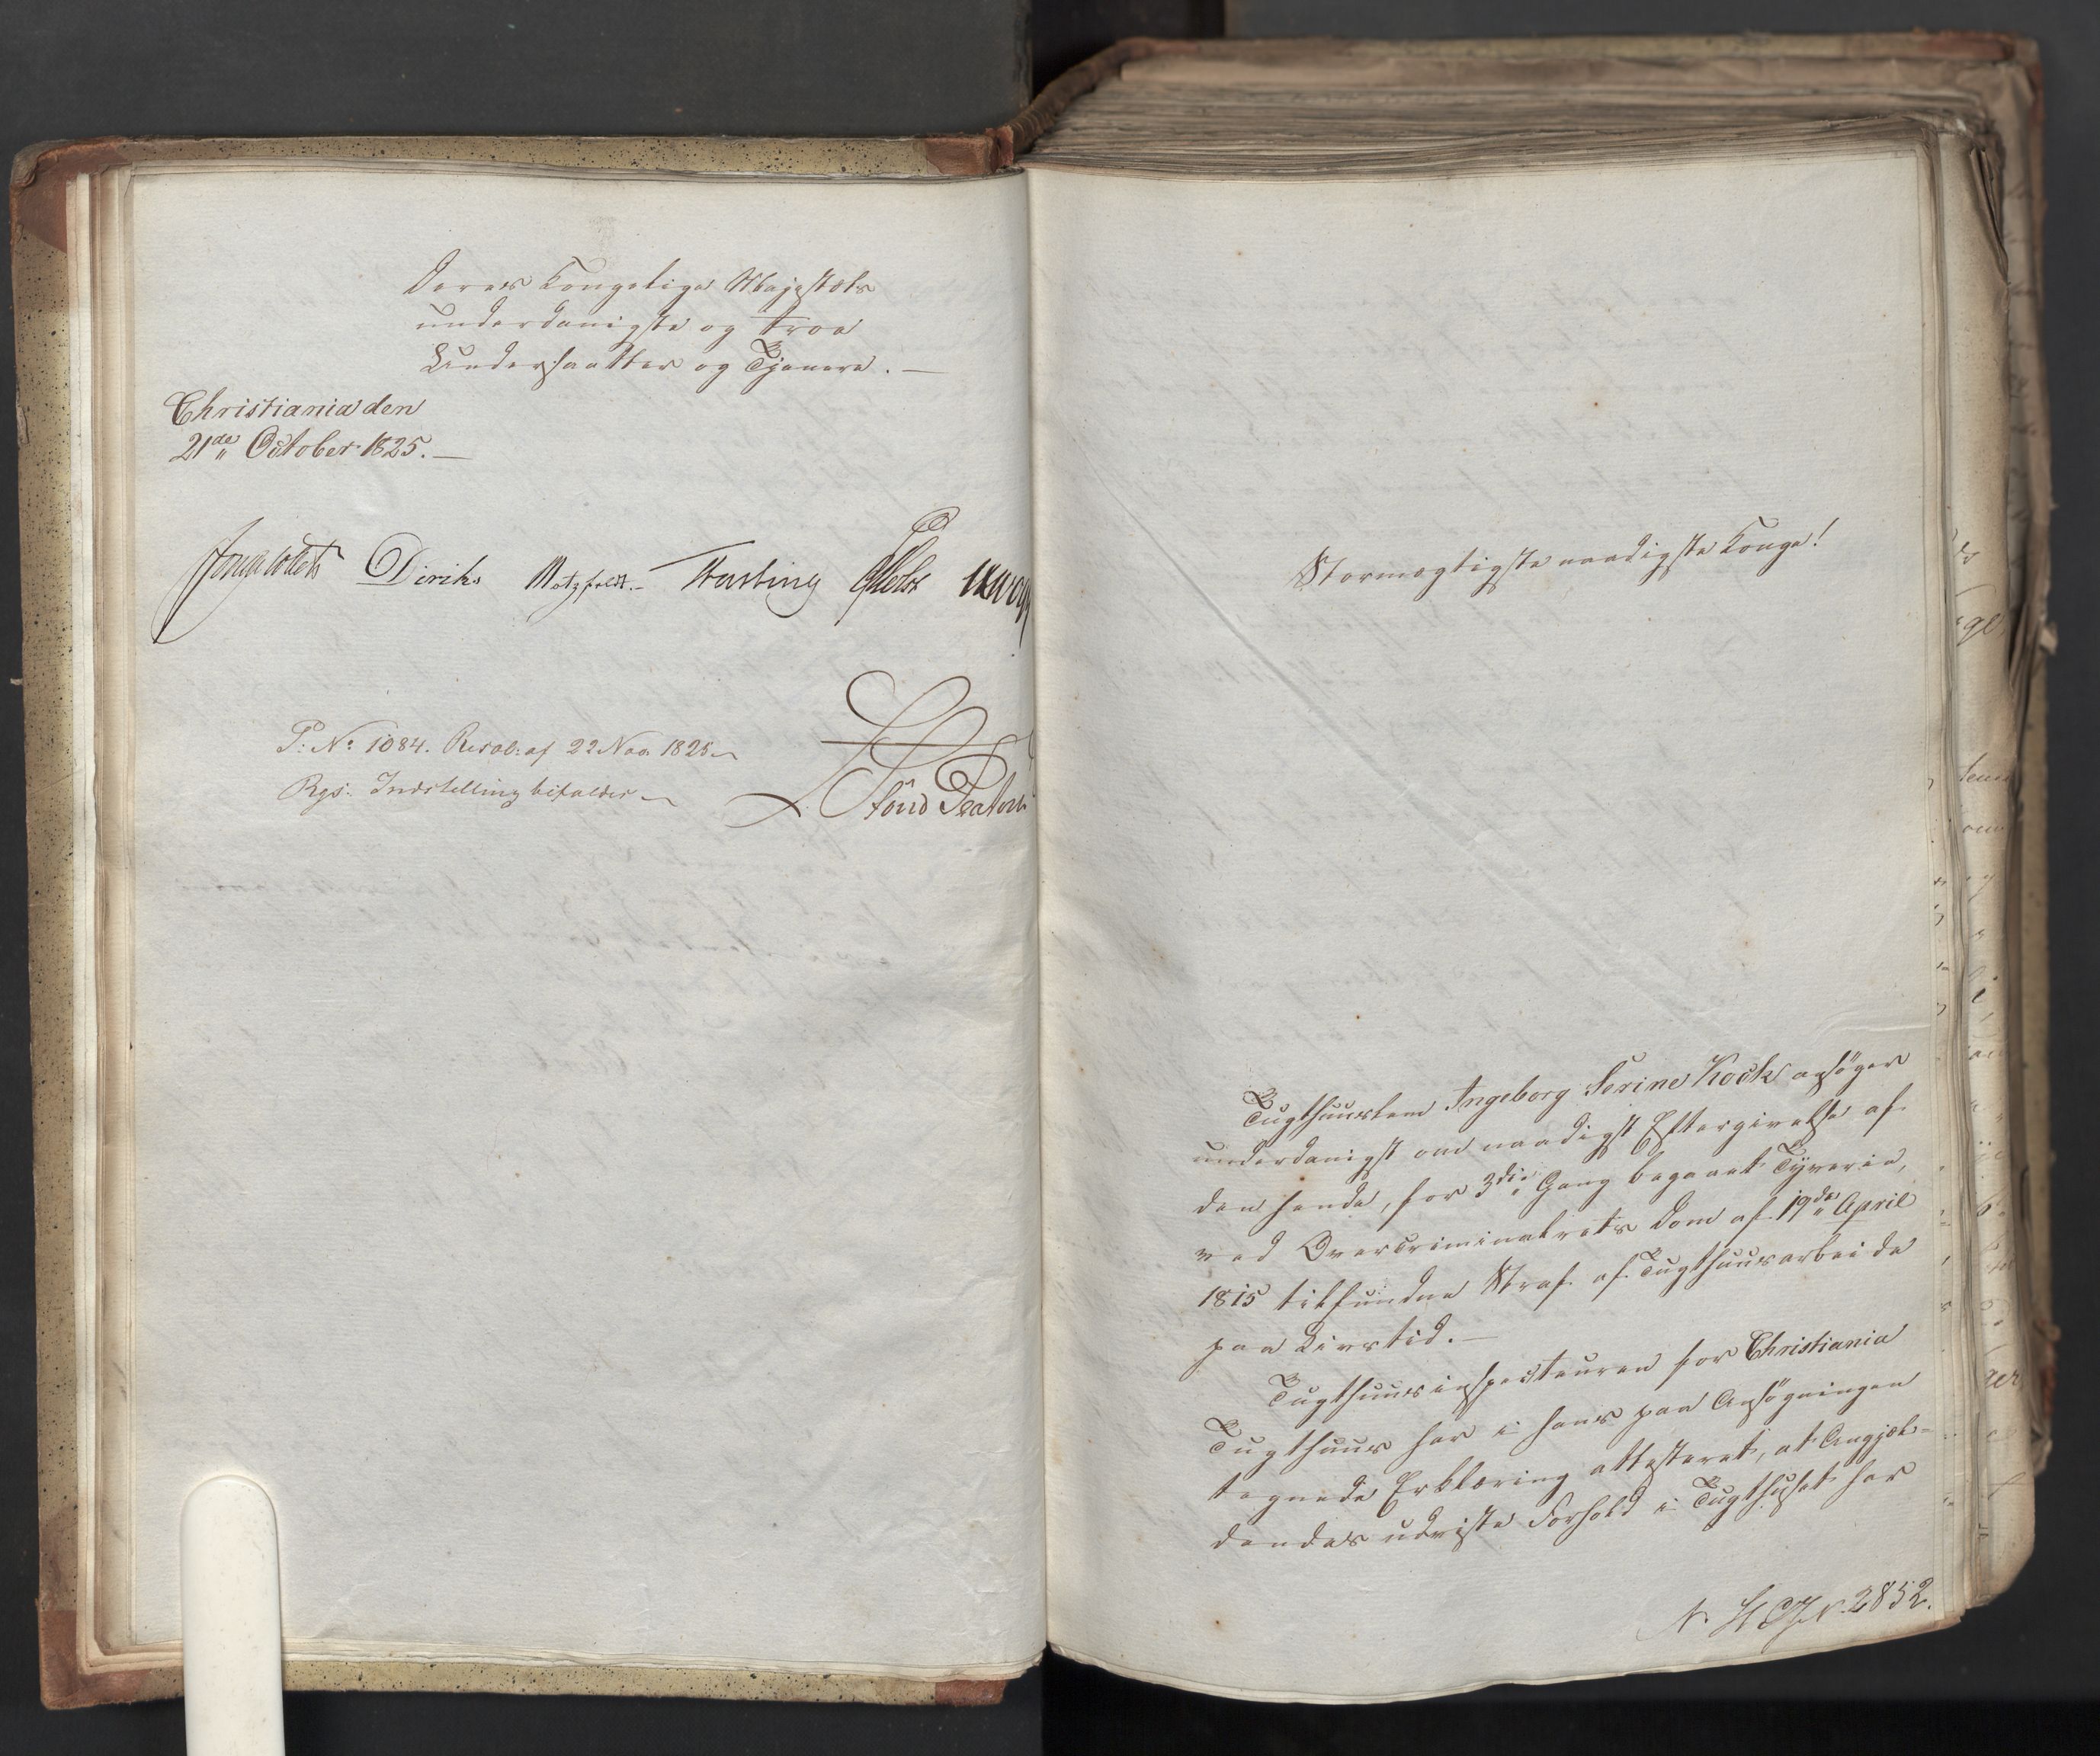 Deres Kongelige Majestæts
underdanigste og troe
Undersaatter og Tjenere. —
Christiania den
21de October 1825. —
Diriks Motzfeldt. Fasting
P: No 1084. Resol: af 22 Nov 1825
Rgs: Indstilling bifaldes
Stormægtigste naadigste Konge!
Tugthuuslem Ingeborg Serine Kock ansøger
underdanigst om naadigst Eftergivelse af
den hende, for 3die Gang begaaet Tyverie,
ved Overcriminalrets Dom af 19de April
1815 tilfundne Straf af Tugthuusarbeide
paa Livstid. —
Tugthuusinspecteuren for Christiania
Tugthuus har i hans paa Ansøgningen
tegnede Erklæring attesteret, at Angjæl-
dendes udviste Forhold i Tugthuset har
2852.